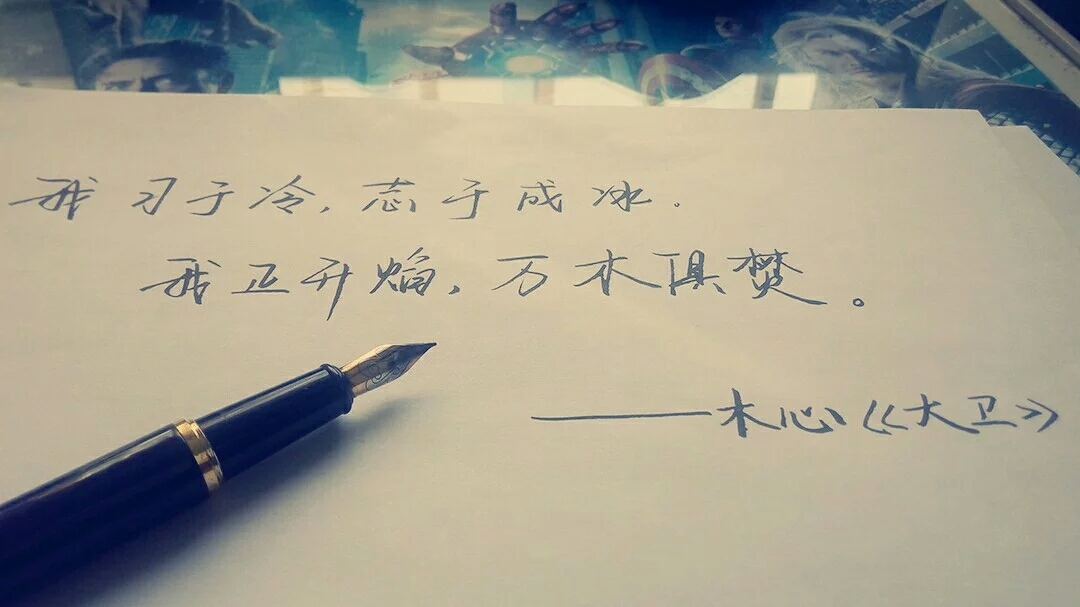 我习于冷，志于成冰．
我正升焰，万木俱焚。
——木心《大卫》